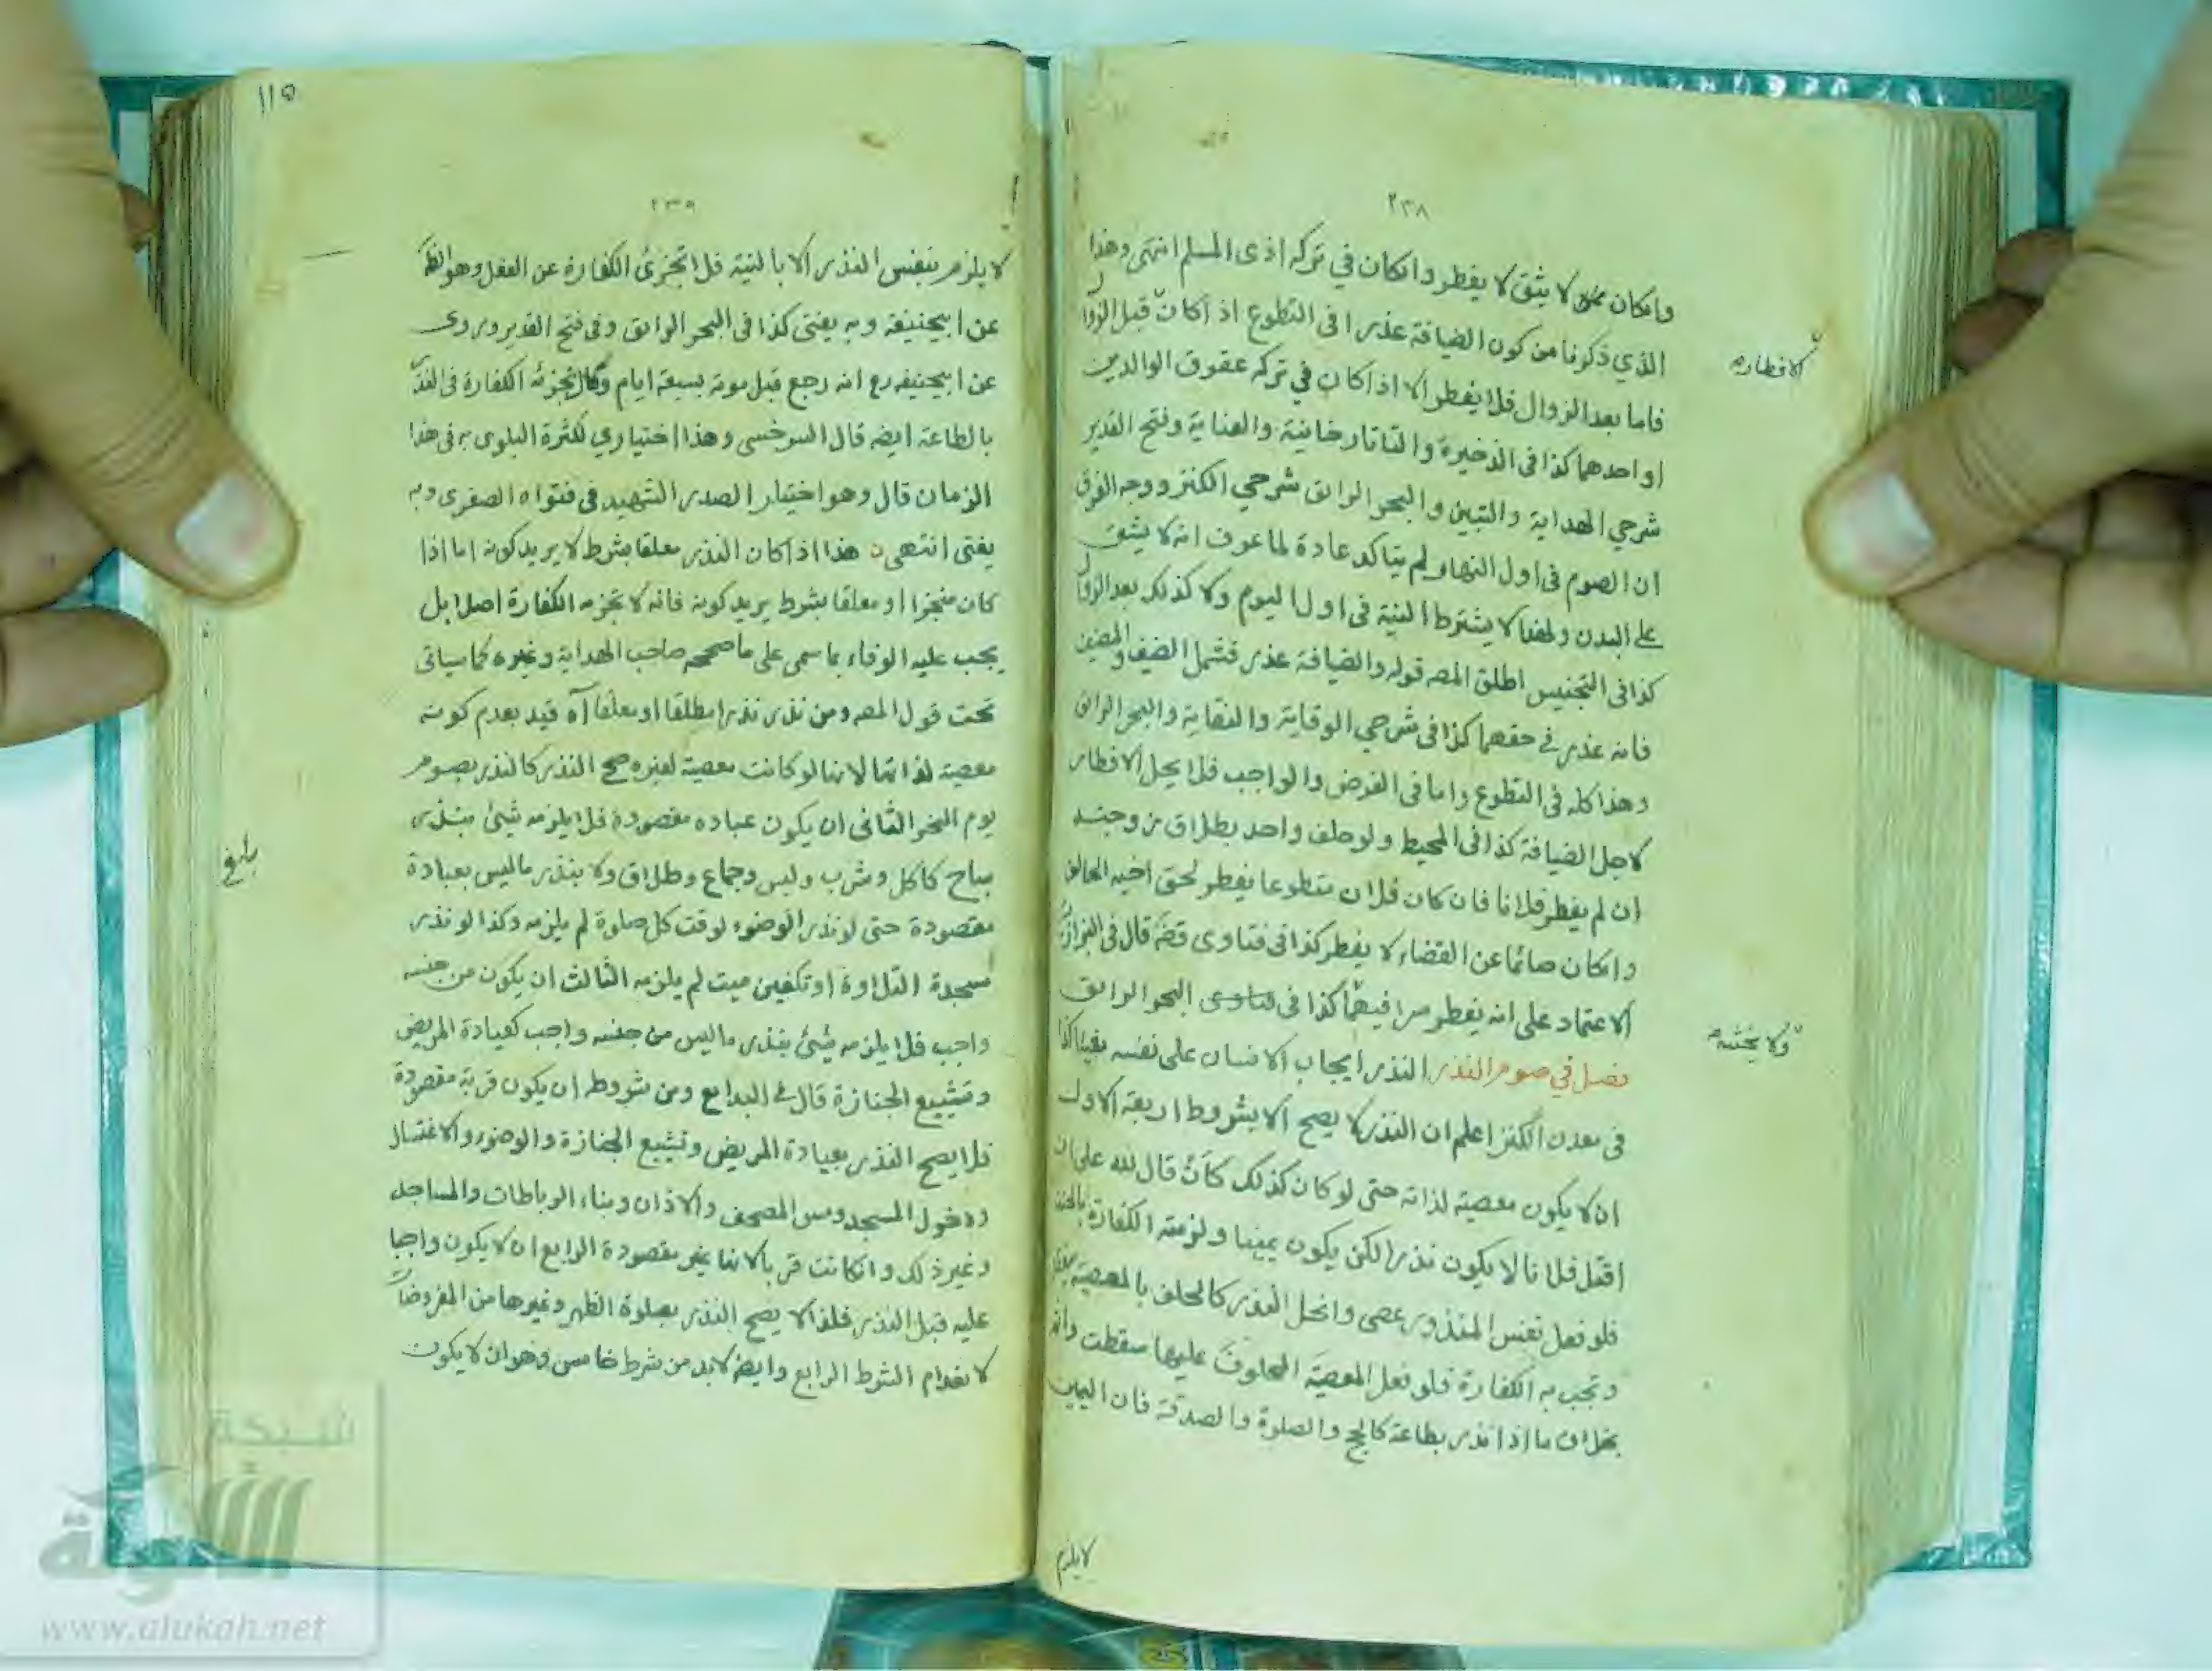 ٢٣٨
وانكان ممن لا يثق لا يفطر وانكان في تركه اذى المسلم انتهى وهذا
الذي ذكرنا من كون الضيافة عذرا فى التطوع اذ اكان قبل الزوال
فاما بعد الزوال فلا يفطر الا اذا كان في تركه عقوق الوالدين
او احدهما كذا فى الذخيرة والتاتارخانية والعناية وفتح القدير
شرحي الهداية والتبين والبحر الرائق شرحي الكنز ووجه الفرق
ان الصوم فى اول النهار لم يتاكد عادة لما عرف انه لا يشق
على البدن ولهذا لا يشترط النية فى اول اليوم ولا كذلك بعد الزوال
كذا فى التجنيس اطلق المصه قوله والضيافة عذر فشمل الضيف والمضيف
فانه عذر في حقهما كذا فى شرحي الوقاية والنقاية والبحر الرائق
وهذا كله فى التطوع واما فى الفرض والواجب فلا يحل الافطار
لاجل الضيافة كذا فى المحيط ولو حلف واحد بطلاق زوجته
ان لم يفطر فلانا فان كان فلان متطوعا يفطر لحق اخيه الحالف
وانكان صائما عن القضاء لا يفطر كذا فى فتاوى قضه قال فى البزازية
الاعتماد على انه يفطر مرا فيهما كذا فى البحر الرائق
فصل في صوم النذر النذر ايجاب الانسان على نفسه يقينا كذا
فى معدن الكنز اعلم ان النذر لا يصح الا بشروط اربعة الاول
ان لا يكون معصية لذاته حتى لو كان كذلك كأن قال لله على ان
اقتل فلانا لا يكون نذرا لكن يكون يمينا ولزمته الكفارة بالحنث
فلو فعل نفس المنذور عصى وانحل النذر كالحلف بالمعصية
وتجب به الكفارة فلو فعل المعصية المحلوف عليها سقطت واثم
بخلاف ما اذا نذر بطاعة كالحج والصلوة والصدقة فان اليمين
لا يلزم
لافطاره
ولا يحنثه
١١٥
٢٣٩
لا يلزم بنفس النذر الا بالنية فلا تجزئ الكفارة عن الفعل وهو الظه
عن ابيحنيفه وبه يفتى كذا فى البحر الرائق وفى فتح القدير وروى
عن ابيحنيفه رع انه رجع قبل موته بسبعة ايام وقال تجزئه الكفارة فى النذر
بالطاعة ايضه قال السرخسى وهذا اختياري لكثرة البلوى به فى هذا
الزمان قال وهو اختيار الصدر الشهيد فى فتواه الصغرى وبه
يفتى انتهى هذا اذا كان النذر معلقا بشرط لا يريد كونه اما اذا
كان منجزا او معلقا بشرط يريد كونه فانه لا تجزئه الكفارة اصلا بل
يجب عليه الوفاء بما سمى على ما صححه صاحب الهداية وغيره كما سياتى
تحت قول المصه ومن نذر نذرا مطلقا او معلقا آه قيد بعدم كونه
معصية لذاتها لانها لو كانت معصية لغيره صح النذر كالنذر بصوم
يوم النحر الثانى ان يكون عباده مقصودة فلا يلزمه شئ بنذر
مباح كاكل وشرب ولبس وجماع وطلاق ولا بنذر ما ليس بعبادة
مقصودة حتى لو نذر الوضوء لوقت كل صلوة لم يلزمه وكذا لو نذر
سجدة التلاوة او تكفين ميت لم يلزمه الثالث ان يكون من جنسه
واجب فلا يلزمه شئ بنذر ما ليس من جنسه واجب كعيادة المريض
وتشييع الجنازة قال في البدايع ومن شروطه ان يكون قربة مقصودة
فلا يصح النذر بعيادة المريض وتشييع الجنازة والوضوء والاغتسال
ودخول المسجد ومس المصحف والاذان وبناء الرباطات والمساجد
وغير ذلك وانكانت قربا لانها غير مقصودة الرابع ان لا يكون واجبا
عليه قبل النذر فلذا لا يصح النذر بصلوة الظهر وغيرها من المفروضات
لانعدام الشرط الرابع وايضه لابد من شرط خامس وهو ان لا يكون
بلغ
شبكة
الألوكة
www.alukah.net